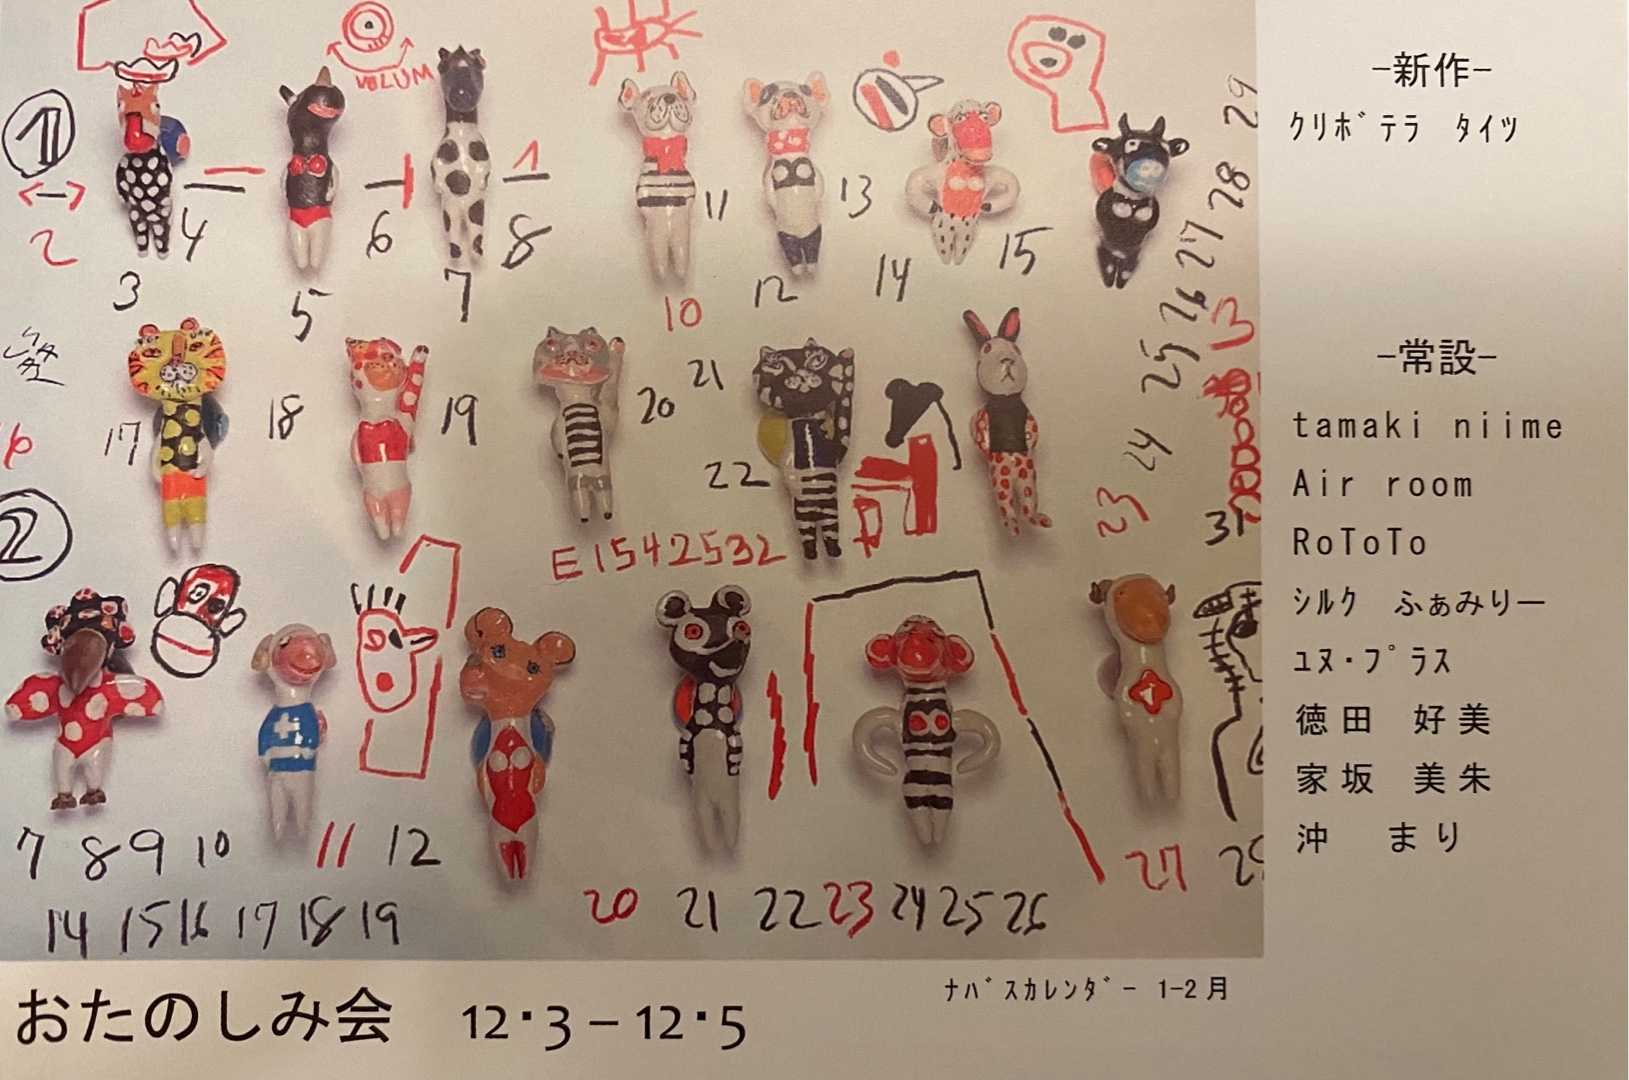 VOLUM
1
2
3
4
5
6
7
8
1
10
11
12
13
14
15
29
28
27
26
25
24
23
13
17
18
19
20
21
22
E1542532
31
6
2
7 8 9 10 11 12
14 15 16 17 18 19
20 21 22 23 24 25 26
27
ナバスカレンダー 1-2月
おたのしみ会 12・3－12・5
−新作−
クリボテラ タイツ
−常設−
tamaki niime
Air room
RoToTo
シルク ふぁみりー
ユヌ・プラス
徳田 好美
家坂 美朱
沖 まり